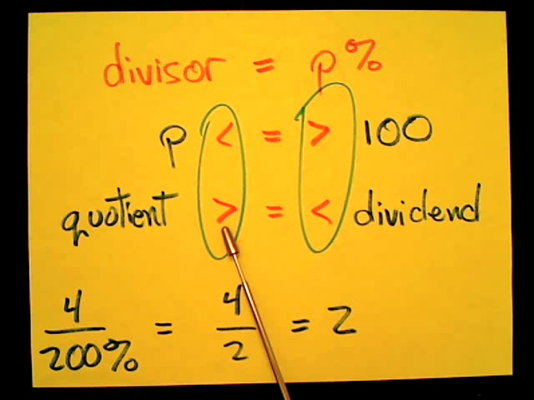 divisor = p%
p < = > 100
quotient > = < dividend
4/200% = 4/2 = 2